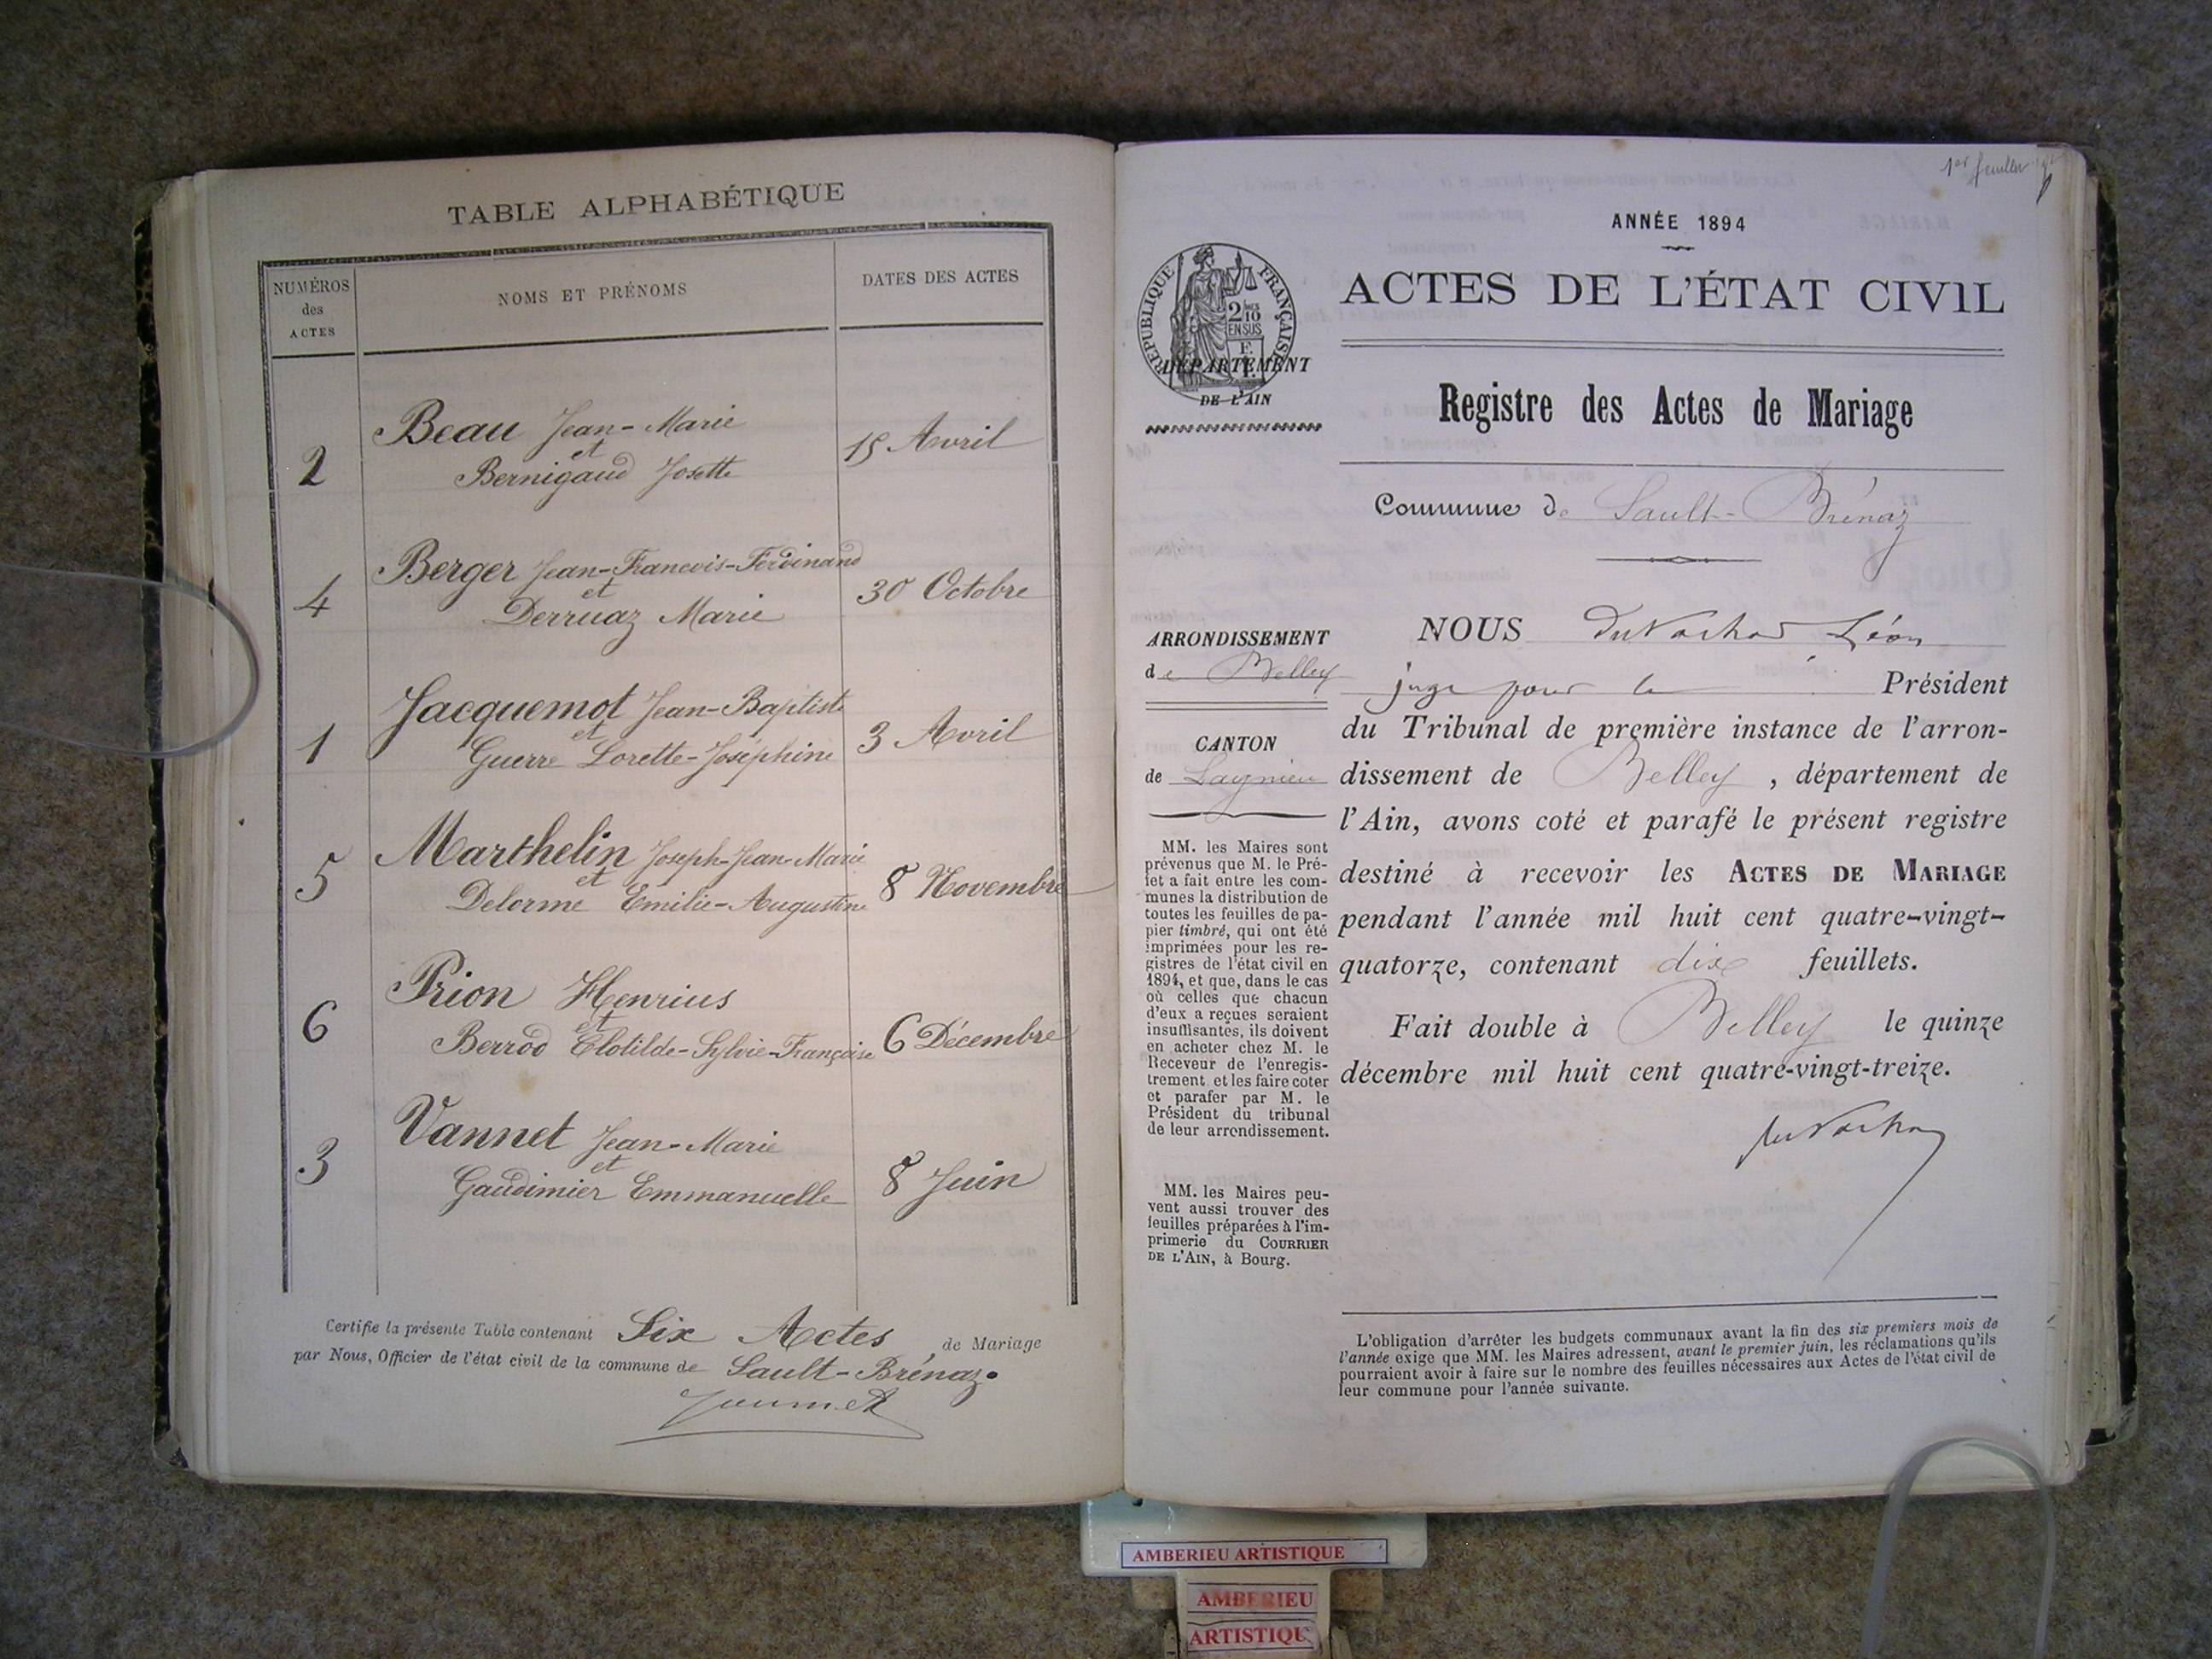 TABLE ALPHABÉTIQUE
NUMÉROS
des
ACTES
NOMS ET PRÉNOMS
DATES DES ACTES
2
Beau Jean-Marie
et
Bernigaud Josette
15 Avril
4
Berger Jean-Francois-Ferdinand
et
Derruaz Marie
30 Octobre
1
Jacquemot Jean-Baptiste
et
Guerre Lorette-Joséphine
3 Avril
5
Marthelin Joseph-Jean-Marie
et
Delorme Emilie-Augustine
8 Novembre
6
Prion Henrius
et
Berrod Clotilde-Sylvie-Françoise
6 Décembre
3
Vannet Jean-Marie
et
Gaudimier Emmanuelle
8 Juin
Certifie la présente Table contenant Six Actes, de Mariage
par Nous, Officier de l'état civil de la commune de Sault-Brénaz.
1er feuillet
ANNÉE 1894
RÉPUBLIQUE FRANÇAISE
2/10
EN SUS
DÉPARTEMENT
DE L'AIN
ACTES DE L'ÉTAT CIVIL
Registre des Actes de Mariage
Commune de Sault-Brénaz
ARRONDISSEMENT
de Belley
CANTON
de Lagnieu
MM. les Maires sont
prévenus que M. le Pré-
fet a fait entre les com-
munes la distribution de
toutes les feuilles de pa-
pier timbré, qui ont été
imprimées pour les re-
gistres de l'état civil en
1894, et que, dans le cas
où celles que chacun
d'eux a reçues seraient
insuffisantes, ils doivent
en acheter chez M. le
Receveur de l'enregis-
trement et les faire coter
et parafer par M. le
Président du tribunal
de leur arrondissement.
MM. les Maires peu-
vent aussi trouver des
feuilles préparées à l'im-
primerie du COURRIER
DE L'AIN, à Bourg.
NOUS Léon
juge pour le Président
du Tribunal de première instance de l'arron-
dissement de Belley, département de
l'Ain, avons coté et parafé le présent registre
destiné à recevoir les ACTES DE MARIAGE
pendant l'année mil huit cent quatre-vingt-
quatorze, contenant dix feuillets.
Fait double à Belley le quinze
décembre mil huit cent quatre-vingt-treize.
L'obligation d'arrêter les budgets communaux avant la fin des six premiers mois de
l'année exige que MM. les Maires adressent, avant le premier juin, les réclamations qu'ils
pourraient avoir à faire sur le nombre des feuilles nécessaires aux Actes de l'état civil de
leur commune pour l'année suivante.
AMBERIEU ARTISTIQUE
AMBERIEU
ARTISTIQU